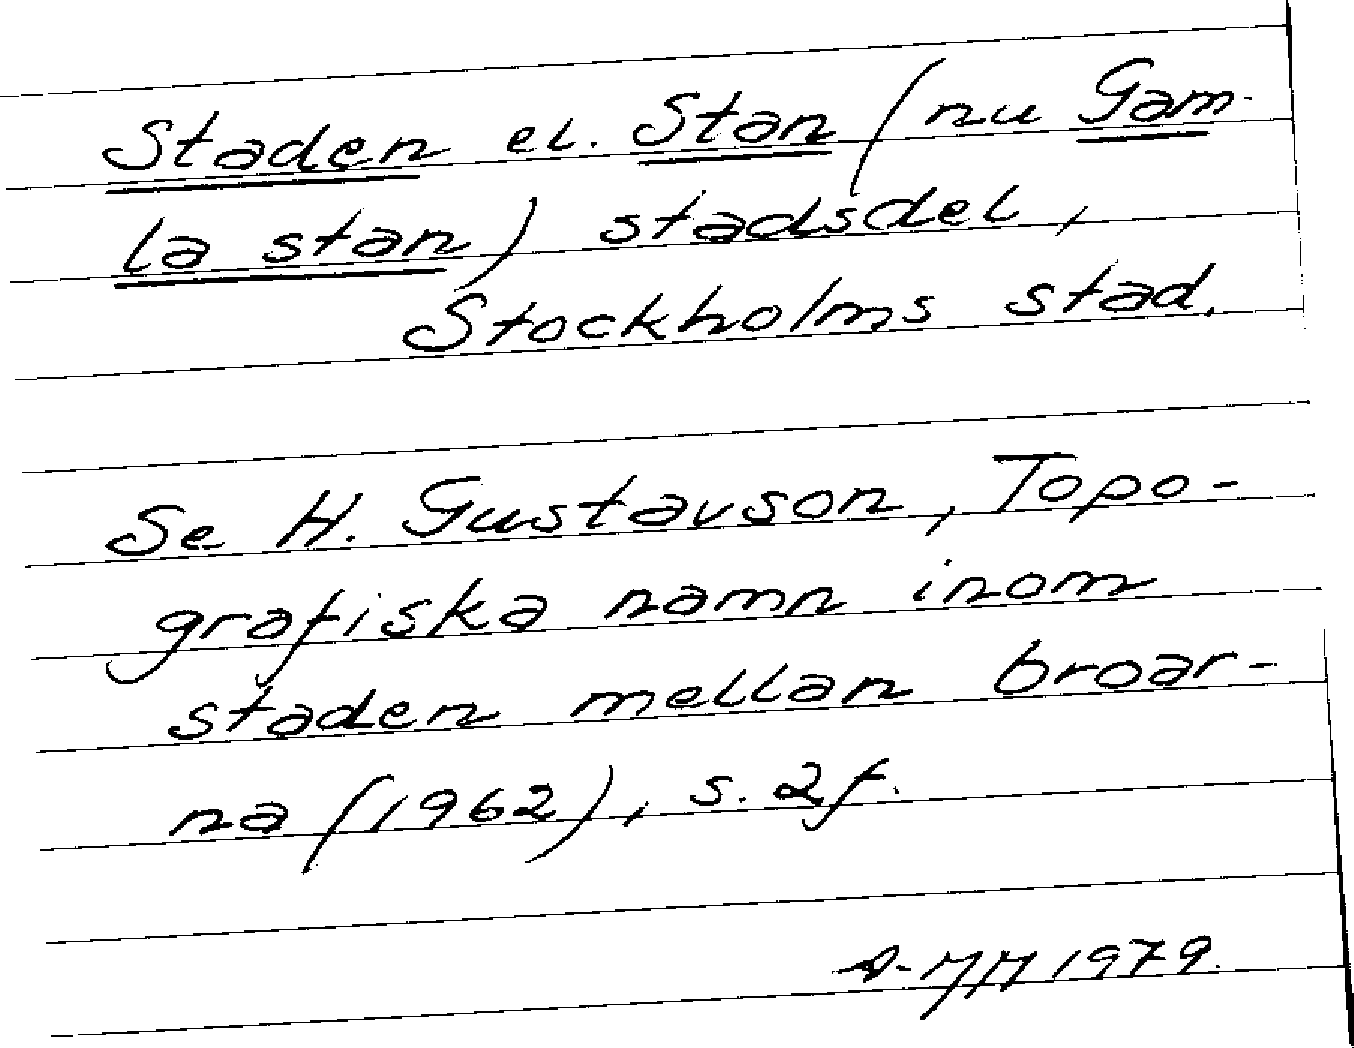 Staden el. Stan (nu Gam-
la stan) stadsdel,
Stockholms stad.
Se H. Gustavson, Topo-
grafiska namn inom
staden mellan broar-
na (1962), s. 2f.
1979.